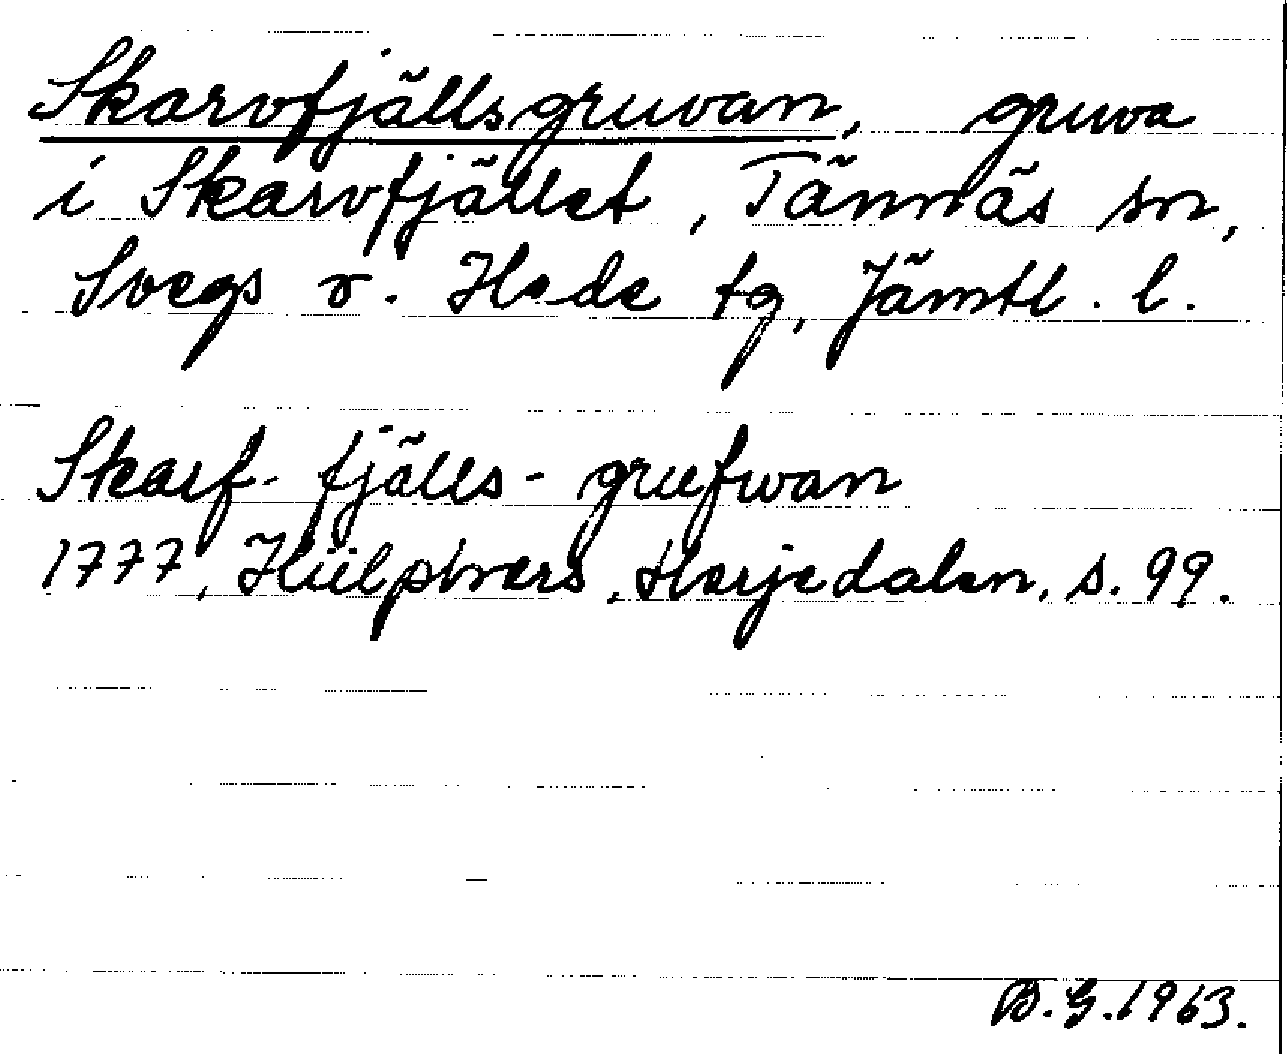 Skarvfjällsgruvan, gruva
i Skarvfjället, Tännäs sn,
Svegs o. Hede tg, Jämtl. l.
Skarf-fjälls-grufwan
1777, Hülphers, Herjedalen, s. 99.
B.G. 1963.